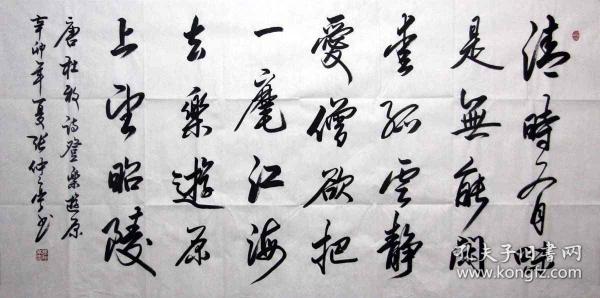 清時有味
是無能閑
愛孤雲靜
愛僧欲把
一麾江海
去樂遊原
上望昭陵
唐杜牧詩登樂遊原
辛卯年夏張仲書
孔夫子旧書网
www.kongfz.com